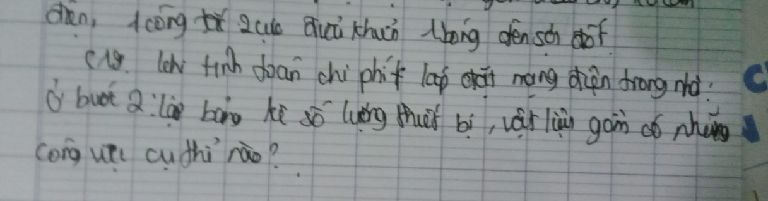 điện, 1 công tơ 2 cực điều khiển 1 bóng đèn sợi đốt
C19. khi tính toán chi phí lắp đặt mạng điện trong nhà:
Ở bước 2: lập bảng kê số lượng thiết bị, vật liệu gồm có những
công việc cụ thể nào?